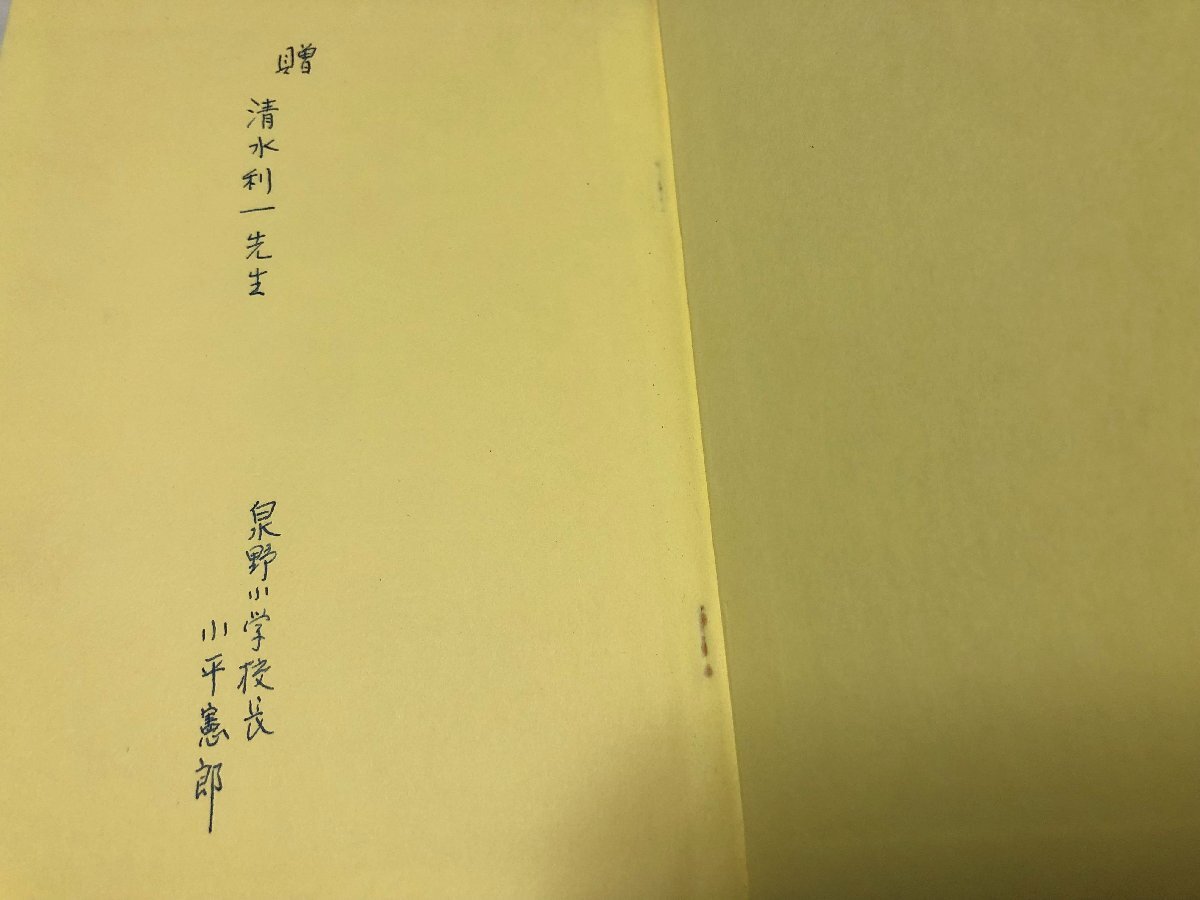 贈
清水利一先生
泉野小学校長
小平憲郎